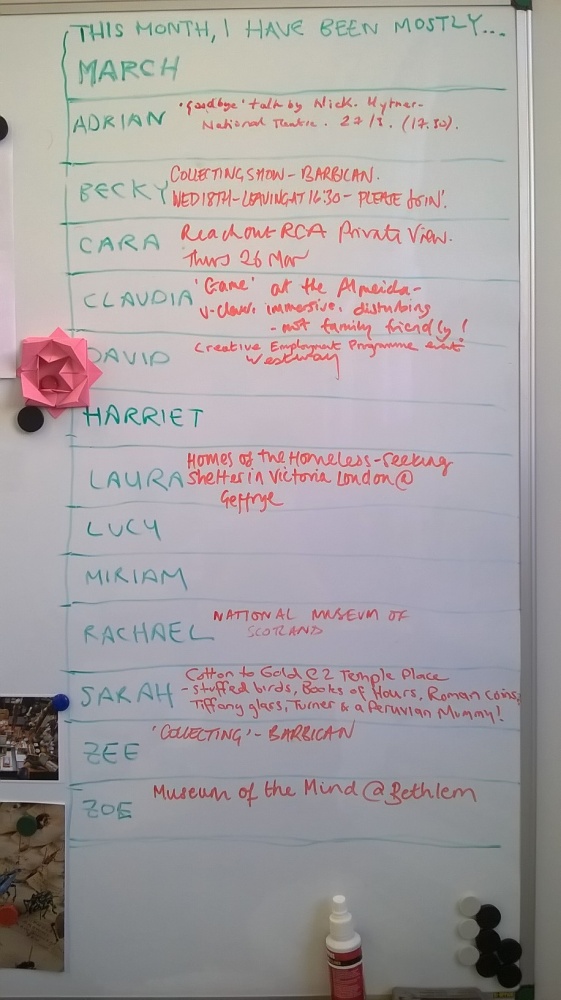 THIS MONTH, I HAVE BEEN MOSTLY...
MARCH
ADRIAN
'Goodbye' talk by Nick. Hytner-
National Theatre. 27/3. (17.30).
BECKY
COLLECTING SHOW - BARBICAN.
WED 18TH - LEAVING AT 16:30 - PLEASE JOIN!
CARA
Reachout RCA Private View.
Thurs 26 Mar
CLAUDIA
'Game' at the Almeida-
immersive, disturbing
- not family friendly!
DAVID
Creative Employment Programme event
Westway
HARRIET
LAURA
Homes of the Homeless - Seeking
Shelter in Victoria London @
Geffrye
LUCY
MIRIAM
RACHAEL
NATIONAL MUSEUM OF
SCOTLAND
SARAH
Cotton to Gold @ 2 Temple Place
- stuffed birds, Books of Hours, Roman coins,
Tiffany glass, Turner & a Peruvian Mummy!
ZEE
'COLLECTING' - BARBICAN
ZOE
Museum of the Mind @ Bethlem